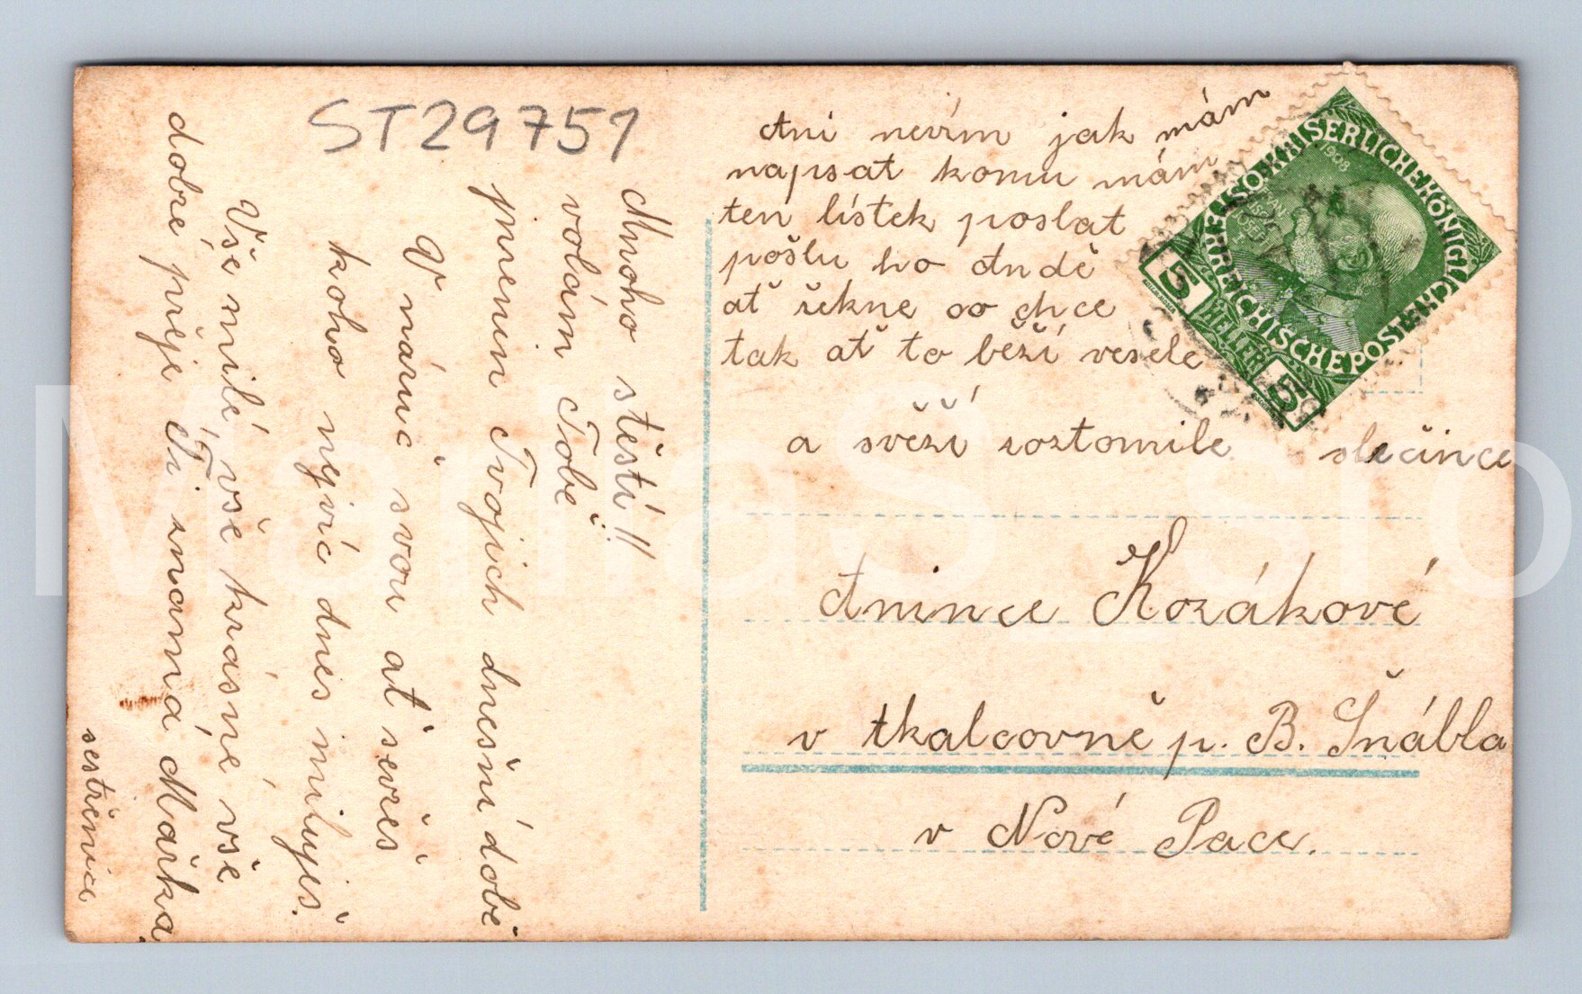 ST29751
Mnoho štěstí!!
volám Tobě
jmenin Tvojich dnešní době
V náruč svou ať sevřeš
koho nejvíc dnes miluješ.
Vše milé, vše krásné vše
dobré přeje Ti známá Mařka
sestřenice
Ani nevím jak mám
napsat komu mám
ten lístek poslat
pošlu ho Andě
ať řekne co chce
tak ať to běží vesele
a svěží roztomile slečince
Anince Kozákové
v tkalcovně p. B. Šnábla
v Nové Pace.
KAISERLICHE KÖNIGLICHE
ÖSTERREICHISCHE POST
1908
5 HELLER 5